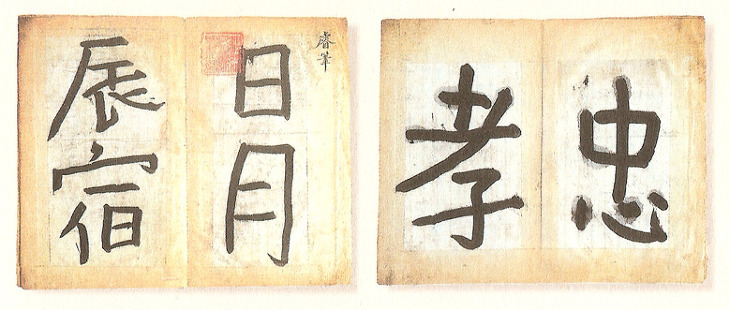 睿筆
日月
辰宿
忠
孝